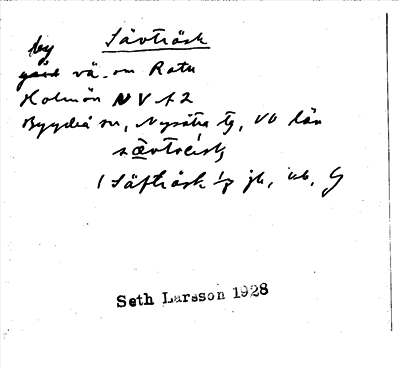 by Sävträsk
gård vä. om Ratu
Holmön NV f2
Bygdeå sn, Nysätra tg, Vb län
Säfträsk jb,
Seth Larsson 1928